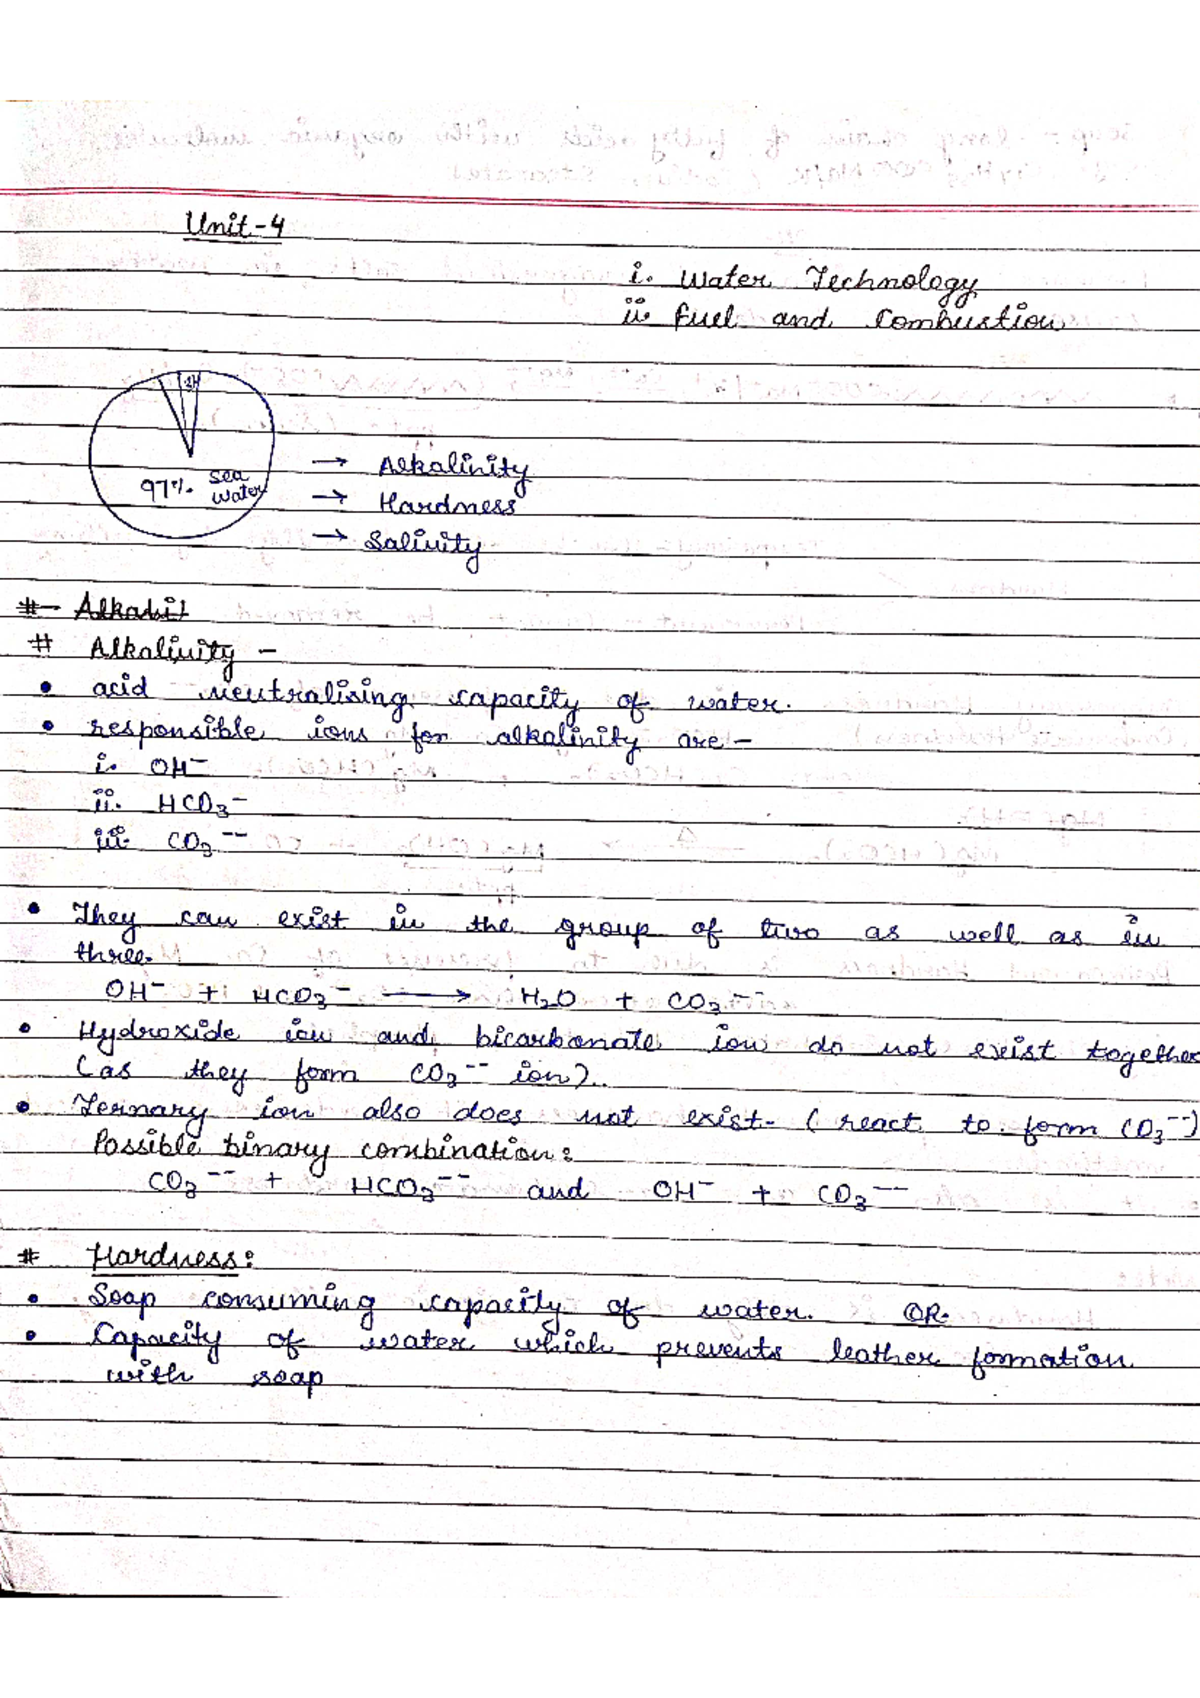 Unit-4
i. Water Technology
ii. Fuel and Combustion
97% Sea
water
→ Alkalinity
→ Hardness
→ Salinity
# Alkalinity -
• acid neutralising capacity of water.
• responsible ions for alkalinity are -
i. OH⁻
ii. HCO₃⁻
iii. CO₃⁻⁻
• They can exist in the group of two as well as in
three.
OH⁻ + HCO₃⁻ → H₂O + CO₃⁻⁻
• Hydroxide ion and bicarbonate ion do not exist together
(as they form CO₃⁻⁻ ion).
• Ternary ion also does not exist. (react to form CO₃⁻⁻)
Possible binary combination:
CO₃⁻⁻ + HCO₃⁻⁻ and OH⁻ + CO₃⁻⁻
# Hardness:
• Soap consuming capacity of water. OR.
• Capacity of water which prevents leather formation
with soap